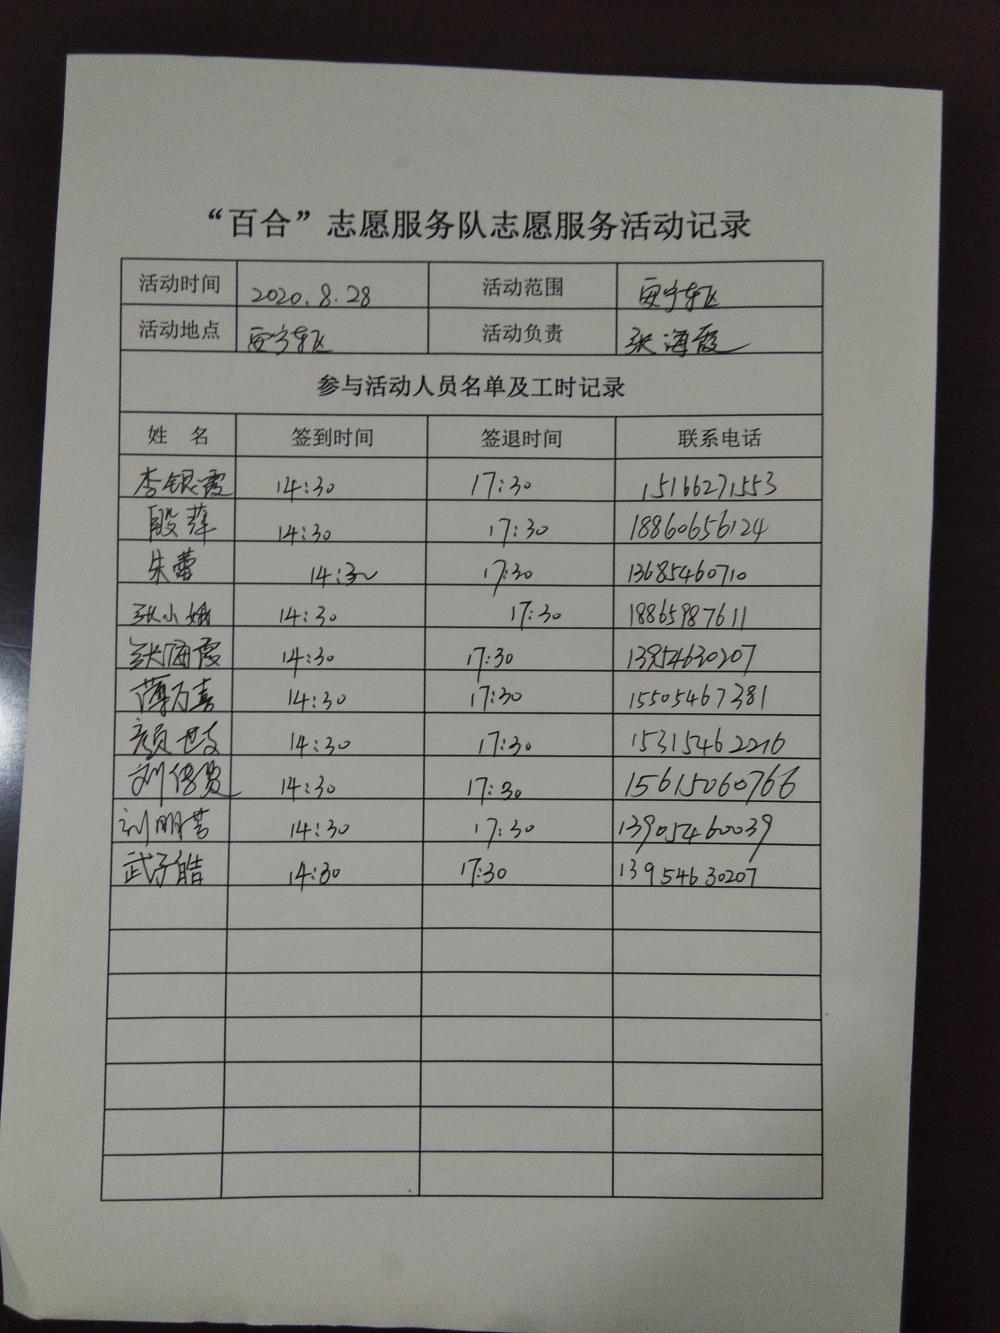 “百合”志愿服务队志愿服务活动记录
活动时间 2020.8.28 活动范围 安宁东区
活动地点 安宁东区 活动负责 张海霞
参与活动人员名单及工时记录
姓 名 签到时间 签退时间 联系电话
李银霞 14:30 17:30 15166271553
殷萍 14:30 17:30 18860656124
朱蕾 14:30 17:30 13685460710
张小娥 14:30 17:30 18865987611
张海霞 14:30 17:30 13954630207
薄万喜 14:30 17:30 15505467381
颜世友 14:30 17:30 15315462216
刘传贤 14:30 17:30 15615060766
刘明芳 14:30 17:30 13905460039
武子皓 14:30 17:30 13954630207